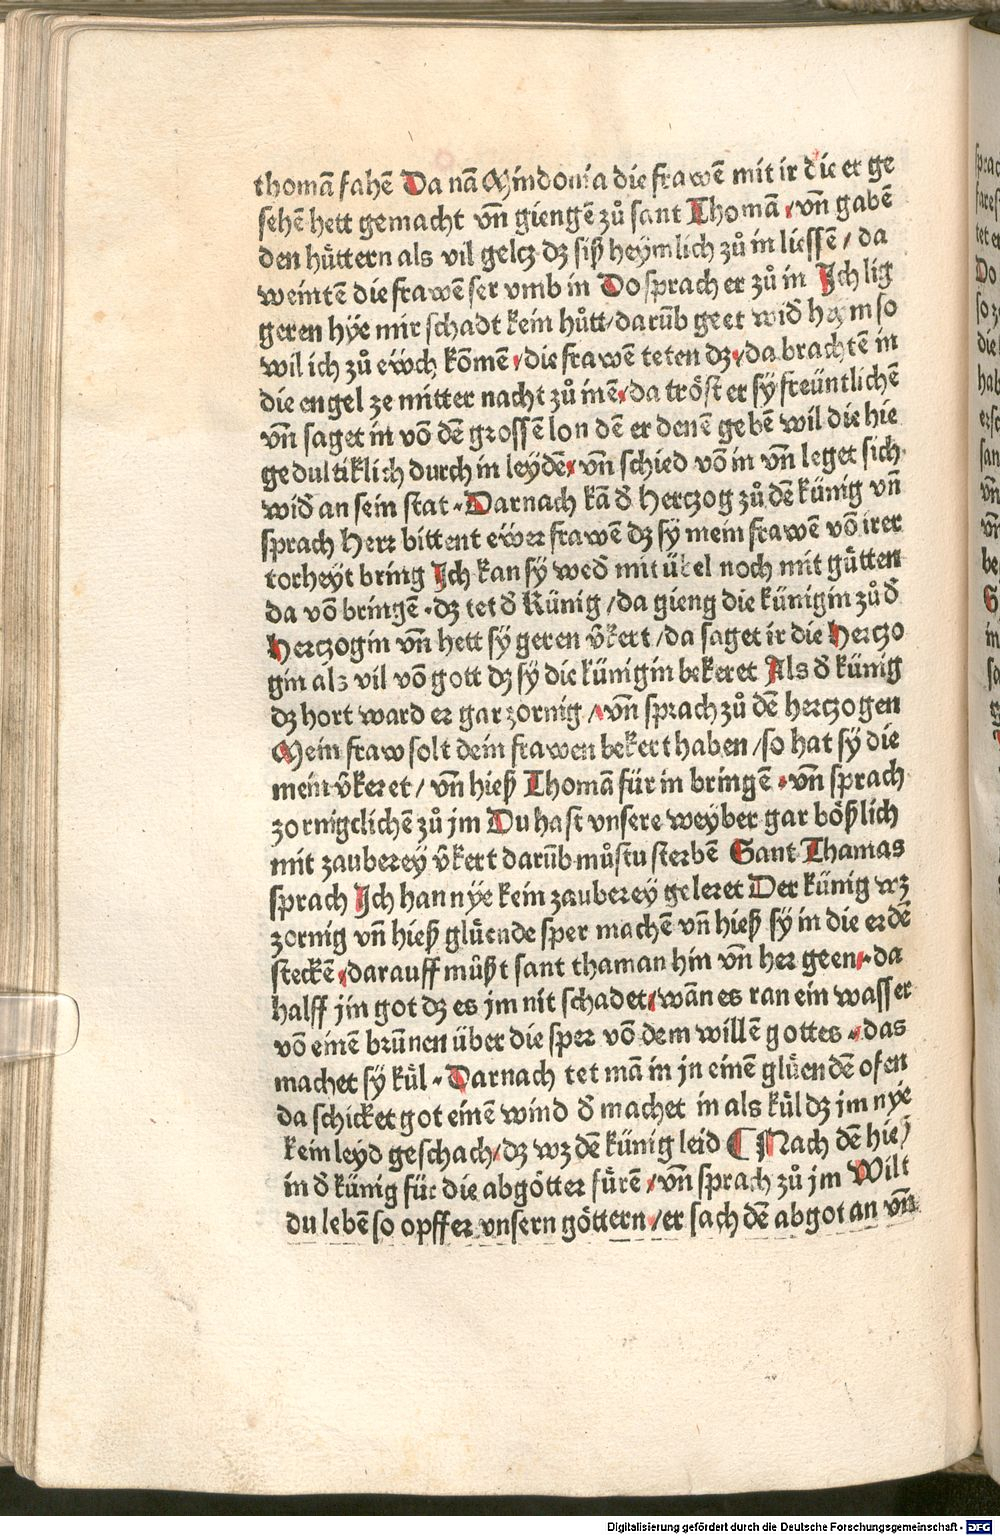 thomā fahē Da nā Mindonia die frawē mit ir die er ge
sehē hett gemacht vñ giengē zů sant Thomā / vñ gabē
den hůttern als vil geltz dz siß heymlich zů in liessē / da
weintē die frawē ser vmb in Do sprach er zů in Ich lig
geren hye mir schadt kein hůtt / darūb geet wid heym so
wil ich zů ewch kōmen / die frawē teten dz / da brachtē in
die engel ze mitter nacht zů inē / da tröst er sÿ freüntlichē
vñ saget in vō dē grossē lon dē er denē gebē wil die hie
gedultiklich durch in leydē / vñ schied vō in vñ leget sich
wid an sein stat . Darnach kā d̄ Hertzog zů dē künig vñ
sprach Herr bittent ewer frawē dz sÿ mein frawē vō irer
torheyt bring Ich kan sÿ wed mit übel noch mit gütten
da vō bringē . dz tet d̄ Künig / da gieng die künigin zů d̄
Hertzogin vñ hett sÿ geren v̄kert / da saget ir die Hertzo
gin als vil vō gott dz sÿ die künigin bekeret Als d̄ künig
dz hort ward er gar zornig / vñ sprach zů dē hertzogen
Mein fraw solt dein frawen bekert haben / so hat sÿ die
mein v̄keret / vñ hieß Thomā für in bringē . vñ sprach
zornigclichē zů jm Du hast vnsere weyber gar bößlich
mit zauberey v̄kert darūb můstu sterbē Sant Thamas
sprach Ich han nye kein zauberey geleret Der künig wz
zornig vñ hieß glüende sper machē vñ hieß sÿ in die erdē
steckē / darauff müßt sant thaman hin vñ her geen / da
halff jm got dz es jm nit schadet / wān es ran ein wasser
vō einē brūnen über die sper vō dem willē gottes . das
machet sÿ kül . Darnach tet mā in jn einē glüendē ofen
da schicket got einē wind d̄ machet in als kül dz jm nye
kein leyd geschach / dz wz dē künig leid ¶ Nach dē hieß
in d̄ künig für die abgötter fürē / vñ sprach zů jm Wilt
du lebē so opffer vnsern göttern / er sach dē abgot an vñ
Digitalisierung gefördert durch die Deutsche Forschungsgemeinschaft - DFG